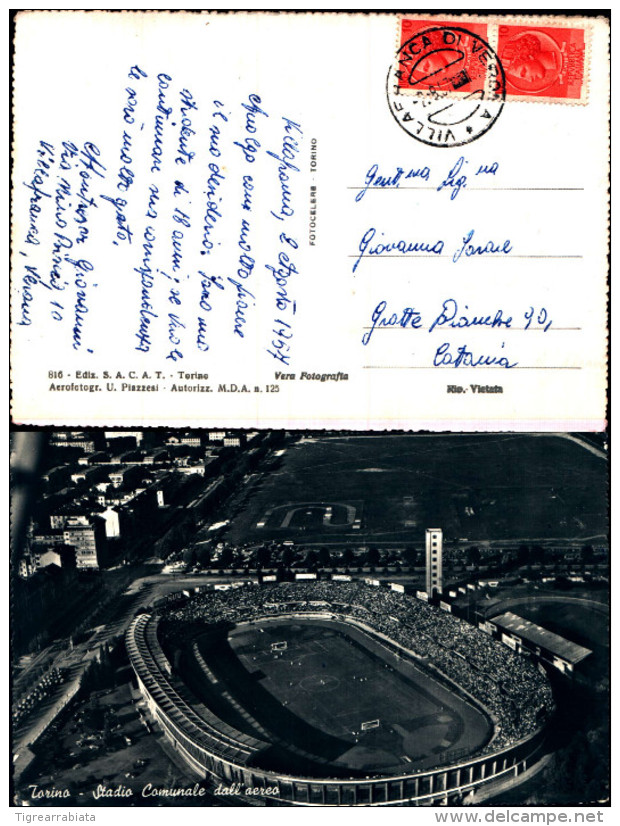 VILLAFRANCA DI VERONA
Villafranca, 2 Agosto 1957
Accolgo con molto piacere
il suo desiderio. Sono uno
studente di 18 anni; se vuole
continuare la corrispondenza
le sarò molto grato.
Giovanni
Via
10
Villafranca, Verona
FOTOCELERE - TORINO
Gent.ma Sig.na
Giovanna
Grotte Bianche 90,
Catania
816 - Ediz. S. A. C. A. T. - Torino
Aerofotogr. U. Piazzesi - Autorizz. M.D.A. n. 125
Vera Fotografia
Rip. Vietata
Torino - Stadio Comunale dall'aereo
Tigrearrabiata
www.delcampe.net